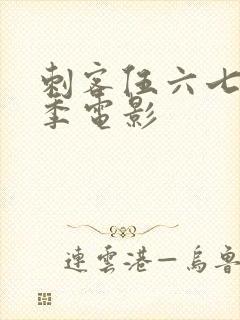 刺客伍六七
季電影
連雲港—烏魯